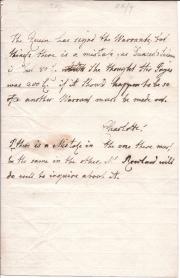 The Queen has signd the Warrants but
thinks there is a mistake as
is She thought the Pages
was 400£. if it should happen to be so
a another Warrant must be made out.
Charlotte.
If there is a Mistake in the one there must
be the same in the other. Mr. Rowland will
do will to inquire about it.